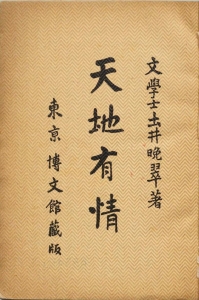 文學士土井晚翠著
天地有情
東京博文館藏版